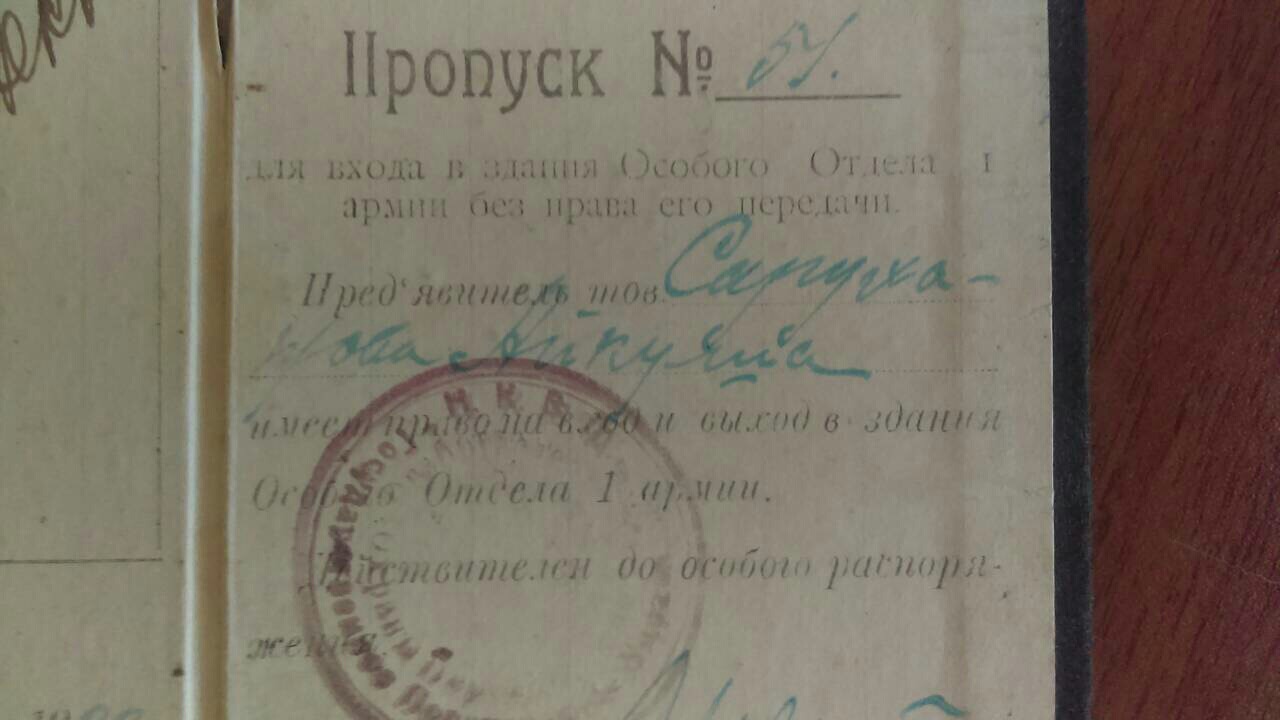 Пропуск № 54.
для входа в здания Особого Отдела 1
армии без права его передачи.
Пред‘явитель тов. Саруха-
нова Айкуяна
имеет право на вход и выход в здания
Особого Отдела 1 армии.
Действителен до особого распоря-
жения.